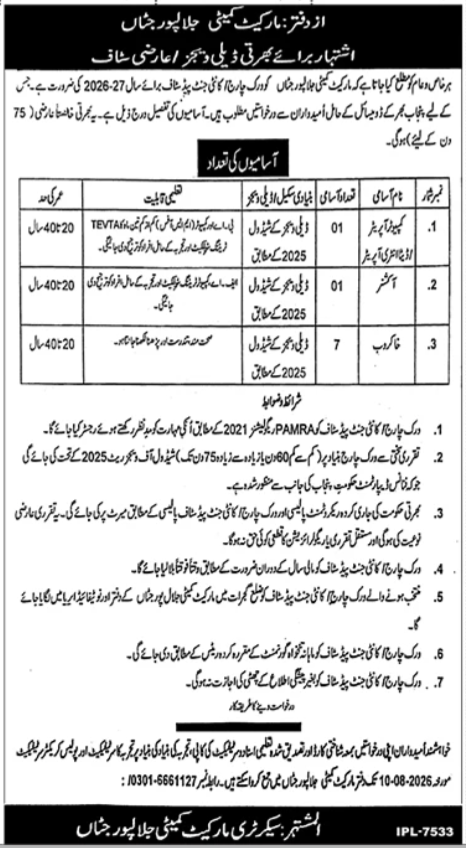 از دفتر: مارکیٹ کمیٹی جلالپور جٹاں
اشتہار برائے بھرتی ڈیلی ویجز / عارضی سٹاف
ہر خاص و عام کو مطلع کیا جاتا ہے کہ مارکیٹ کمیٹی جلالپور جٹاں کو ورک چارج / کانٹی جنٹ پیڈ سٹاف برائے سال 27-2026 کی ضرورت ہے۔ جس
کے لیے پنجاب بھر کے ڈومیسائل کے حامل اُمیدواران سے درخواستیں مطلوب ہیں۔ آسامیوں کی تفصیل درج ذیل ہے۔ یہ بھرتی خالصتاً عارضی (75
دن کے لیئے) ہوگی۔
آسامیوں کی تعداد
نمبر شمار نام آسامی تعداد آسامی بنیادی سکیل / ڈیلی ویجز تعلیمی قابلیت عمر کی حد
1. کمپیوٹر آپریٹر / ڈیٹا انٹری آپریٹر 01 ڈیلی ویجز کے شیڈول 2025 کے مطابق بی۔اے اور کمپیوٹر (ایم ایس آفس) کم از کم تین ماہ کا TEVTA ٹریننگ سرٹیفکیٹ اور تجربہ کے حامل افراد کو ترجیح دی جائیگی۔ 20 تا 40 سال
2. آکشنر 01 ڈیلی ویجز کے شیڈول 2025 کے مطابق ایف۔اے، کمپیوٹر ٹریننگ سرٹیفکیٹ اور تجربہ کے حامل افراد کو ترجیح دی جائیگی۔ 20 تا 40 سال
3. خاکروب 7 ڈیلی ویجز کے شیڈول 2025 کے مطابق صحت مند، تندرست اور پڑھنا لکھنا جانتا ہو۔ 20 تا 40 سال
شرائط و ضوابط
1. ورک چارج / کانٹی جنٹ پیڈ سٹاف کو PAMRA ریگولیشنز 2021 کے مطابق اُنکی مہارت کو مدِنظر رکھتے ہوئے رجسٹر کیا جائے گا۔
2. تقرری سختی سے ورک چارج بنیاد پر (کم سے کم 60 دن یا زیادہ سے زیادہ 75 دن تک) شیڈول آف ویجز ریٹ 2025 کے تحت کی جائے گی
جو کہ فنانس ڈیپارٹمنٹ حکومتِ پنجاب کی جانب سے منظور شدہ ہے۔
3. بھرتی حکومت کی جاری کردہ ریکروٹمنٹ پالیسی اور ورک چارج / کانٹی جنٹ پیڈ سٹاف پالیسی کے مطابق میرٹ پر کی جائے گی۔ یہ تقرری عارضی
نوعیت کی ہوگی اور مستقل تقرری یا ریگولرائزیشن کا قطعی کوئی حق نہ ہوگا۔
4. ورک چارج / کانٹی جنٹ پیڈ سٹاف کو مالی سال کے دوران ضرورت کے مطابق وقتاً فوقتاً بلایا جائے گا۔
5. منتخب ہونے والے ورک چارج / کانٹی جنٹ پیڈ سٹاف کو ضلع گجرات میں مارکیٹ کمیٹی جلال پور جٹاں کے دفتر اور نوٹیفائیڈ ایریا میں لگایا جائے
گا۔
6. ورک چارج / کانٹی جنٹ پیڈ سٹاف کو ماہانہ تنخواہ گورنمنٹ کے مقرر کردہ ریٹس کے مطابق دی جائے گی۔
7. ورک چارج / کانٹی جنٹ پیڈ سٹاف کو بغیر پیشگی اطلاع کے چھٹی کی اجازت نہ ہوگی۔
درخواست دینے کا طریقہ کار
خواہشمند اُمیدواران اپنی درخواستیں بمعہ شناختی کارڈ اور تصدیق شدہ تعلیمی اسناد و سرٹیفکیٹ کی کاپی، تجربہ کی بنیاد پر تجربہ کا سرٹیفکیٹ اور پولیس کریکٹر سرٹیفکیٹ
مورخہ 10-08-2026 تک دفتر مارکیٹ کمیٹی جلالپور جٹاں میں جمع کروا سکتے ہیں۔ رابطہ نمبر 0301-6661127/:
المشتہر: سیکرٹری مارکیٹ کمیٹی جلالپور جٹاں
IPL-7533